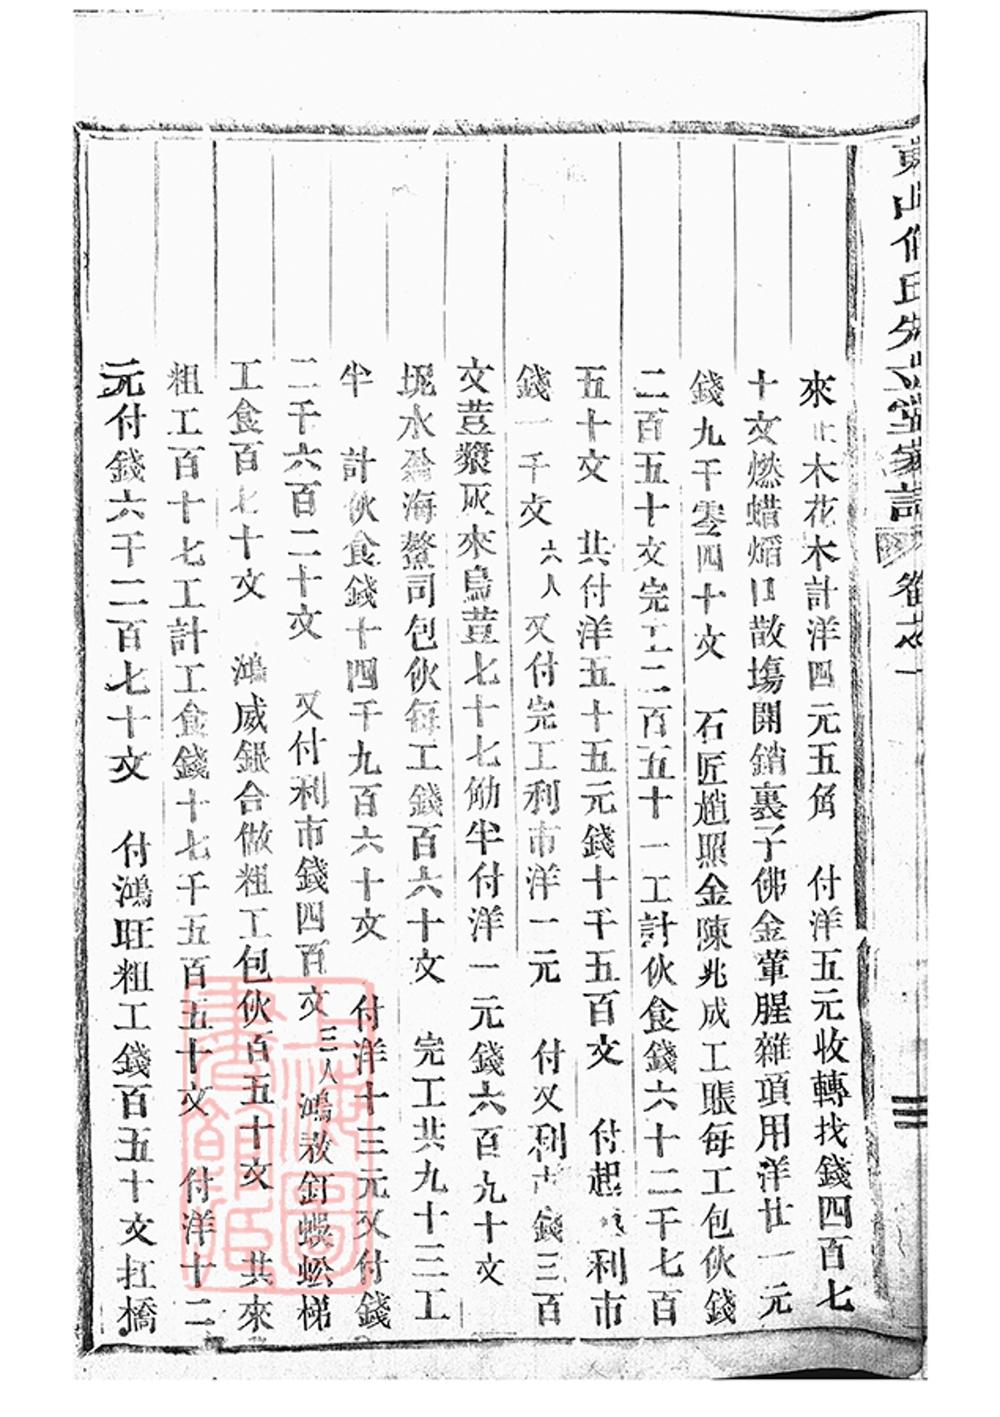 來 木花木計洋四元五角 付洋五元收轉找錢四百七
十文燃蜡熖口散塲開銷裏子佛金葷腥雜項用洋廿一元
錢九千零四十文 石匠趙照金陳兆成工賬每工包伙錢
二百五十文完工二百五十一工計伙食錢六十二千七百
五十文 共付洋五十五元錢十千五百文 付起 利市
錢一千文六人又付完工利市洋一元 付又利市錢三百
文荳漿灰來烏荳七十七觔半付洋一元錢六百九十文
堄水 海鰲司包伙每工錢百六十文 完工共九十三工
半 計伙食錢十四千九百六十文 付洋十三元又付錢
二千六百二十文 又付利市錢四百文三人鴻 釘蜈蚣梯
工食百七十文 鴻威銀合做粗工包伙百五十文 共來
粗工百十七工計工食錢十七千五百五十文 付洋十二
元付錢六千二百七十文 付鴻旺粗工錢百五十文扛橋
上海圖書館藏